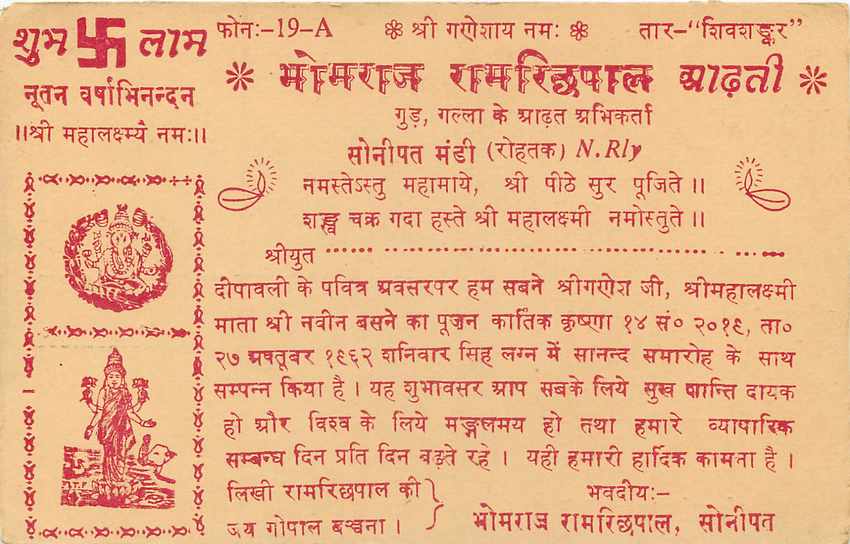 शुभ 卐 लाभ
नूतन वर्षाभिनन्दन
।।श्री महालक्ष्म्यै नमः।।
फोनः-19-A ❀ श्री गणेशाय नमः ❀ तार-"शिवशङ्कर"
* भोमराज रामरिछपाल आढ़ती *
गुड़, गल्ला के आढ़त अभिकर्ता
सोनीपत मंडी (रोहतक) N.Rly
नमस्तेऽस्तु महामाये, श्री पीठे सुर पूजिते।।
शङ्ख चक्र गदा हस्ते श्री महालक्ष्मी नमोस्तुते।।
श्रीयुत ..............................
दीपावली के पवित्र अवसरपर हम सबने श्रीगणेश जी, श्रीमहालक्ष्मी
माता श्री नवीन बसने का पूजन कार्तिक कृष्णा १४ सं० २०१९, ता०
२७ अक्तूबर १९६२ शनिवार सिंह लग्न में सानन्द समारोह के साथ
सम्पन्न किया है। यह शुभावसर आप सबके लिये सुख शान्ति दायक
हो और विश्व के लिये मङ्गलमय हो तथा हमारे व्यापारिक
सम्बन्ध दिन प्रति दिन बढ़ते रहे। यही हमारी हार्दिक कामना है।
लिखी रामरिछपाल की
जय गोपाल बञ्चना।
भवदीयः-
भोमराज रामरिछपाल, सोनीपत